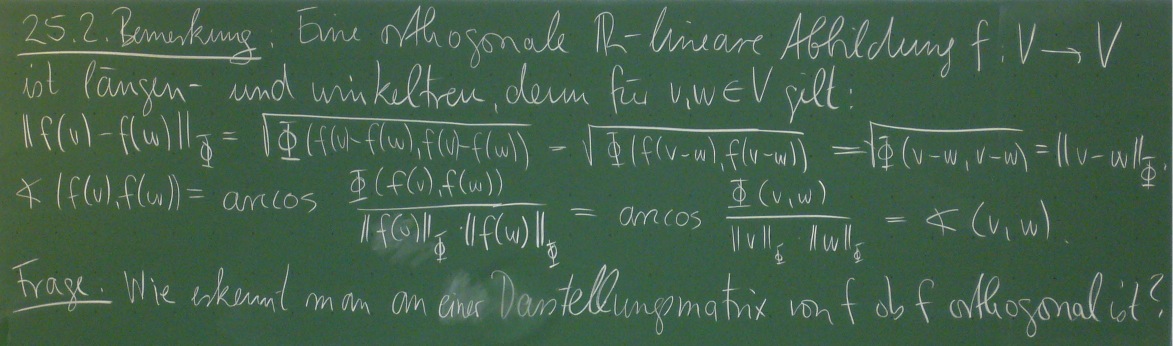 25.2. Bemerkung: Eine orthogonale ℝ-lineare Abbildung f: V → V
ist längen- und winkeltreu, denn für v,w ∈ V gilt:
||f(v) - f(w)||_Φ = √(Φ(f(v)-f(w), f(v)-f(w))) = √(Φ(f(v-w), f(v-w))) = √(Φ(v-w, v-w)) = ||v-w||_Φ.
∢(f(v), f(w)) = arccos Φ(f(v), f(w)) / (||f(v)||_Φ · ||f(w)||_Φ) = arccos Φ(v,w) / (||v||_Φ · ||w||_Φ) = ∢(v,w).
Frage. Wie erkennt man an einer Darstellungsmatrix von f ob f orthogonal ist?